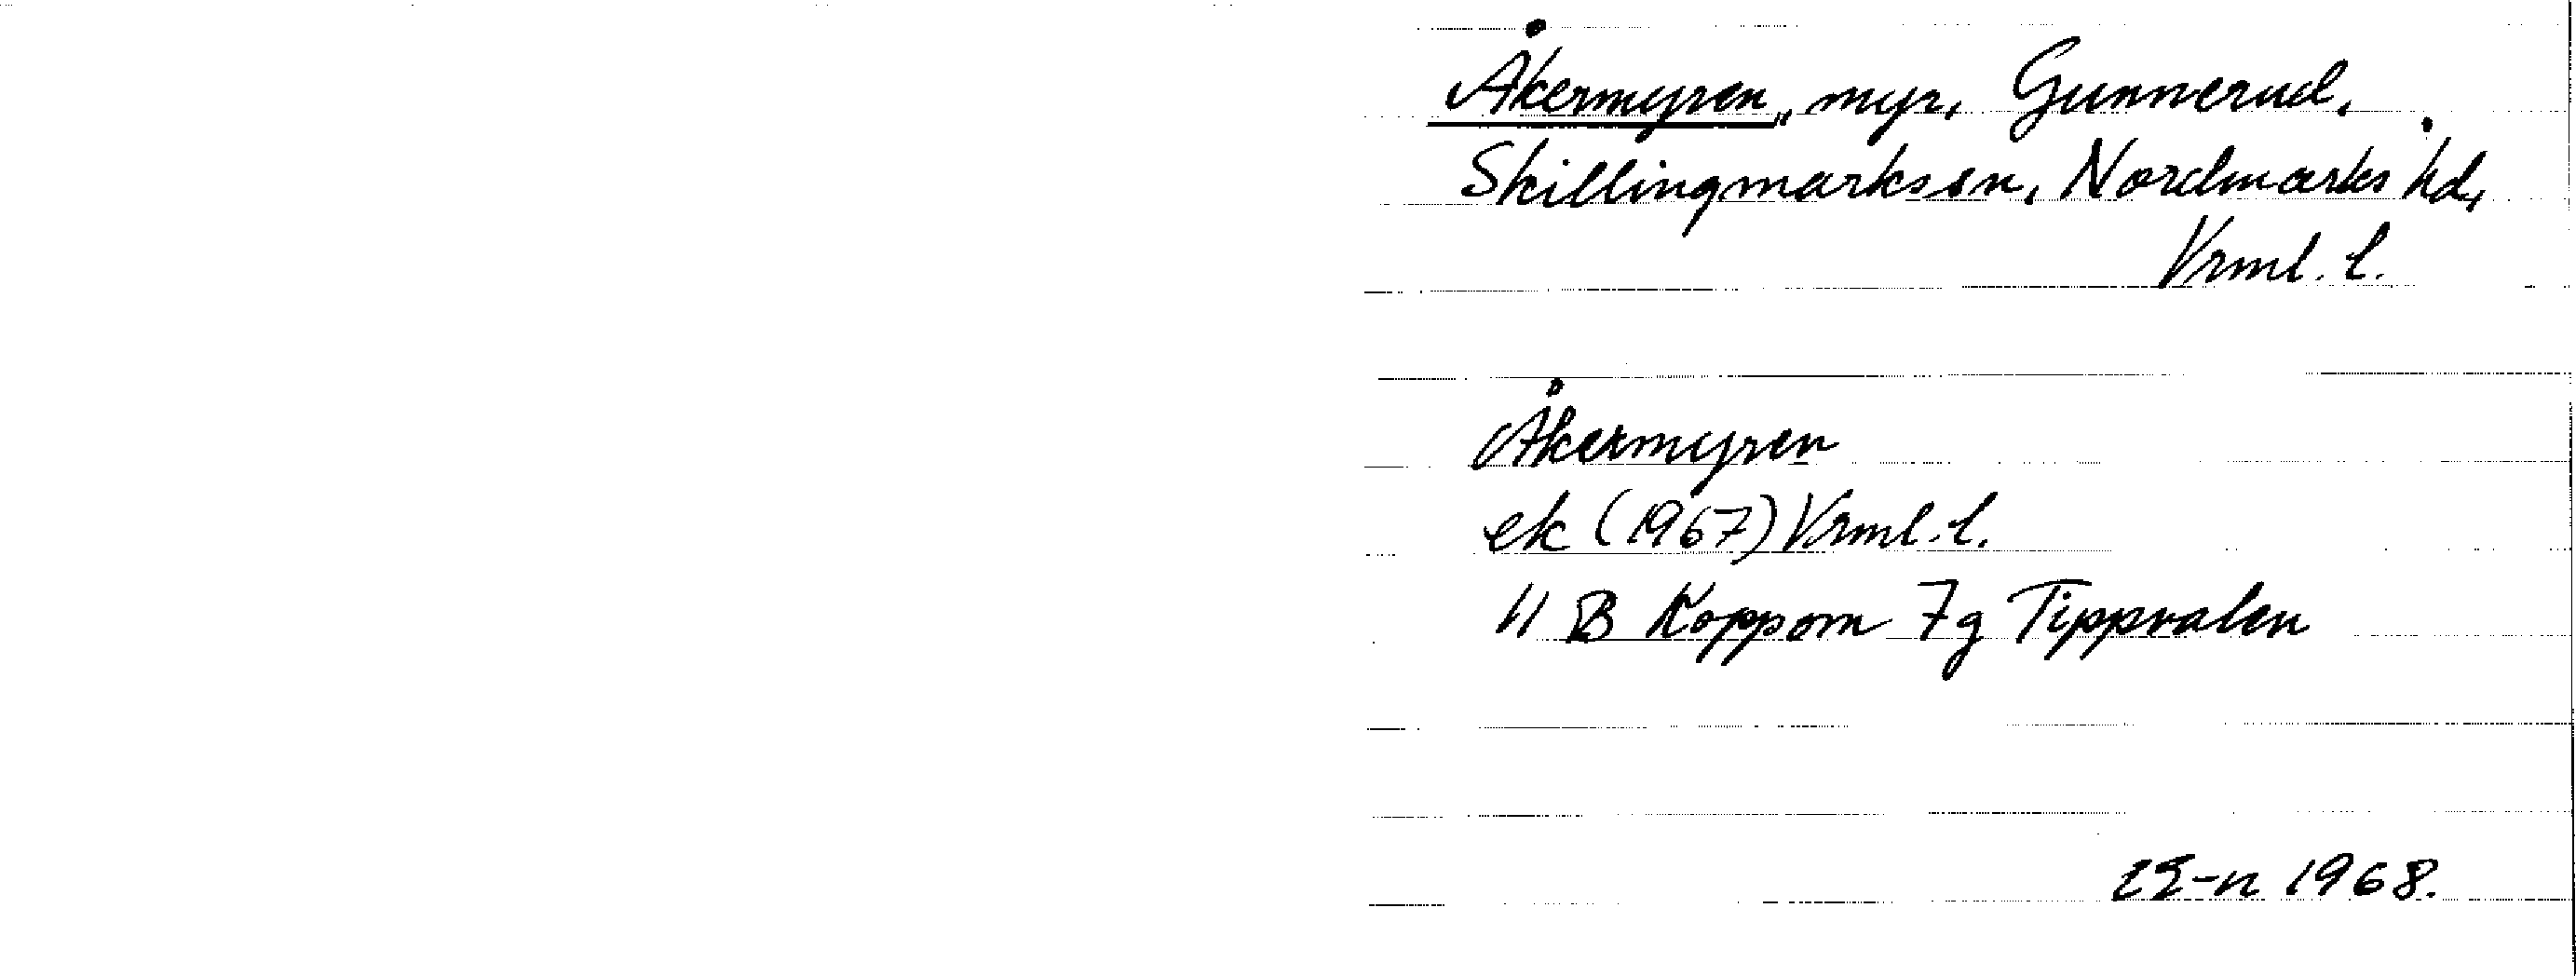 Åkermyren, myr, Gunnerud,
Skillingmarks sn, Nordmarks hd,
Vrml. l.
Åkermyren
ek (1967) Vrml. l.
11 B Koppom 7g Tippvalen
1968.